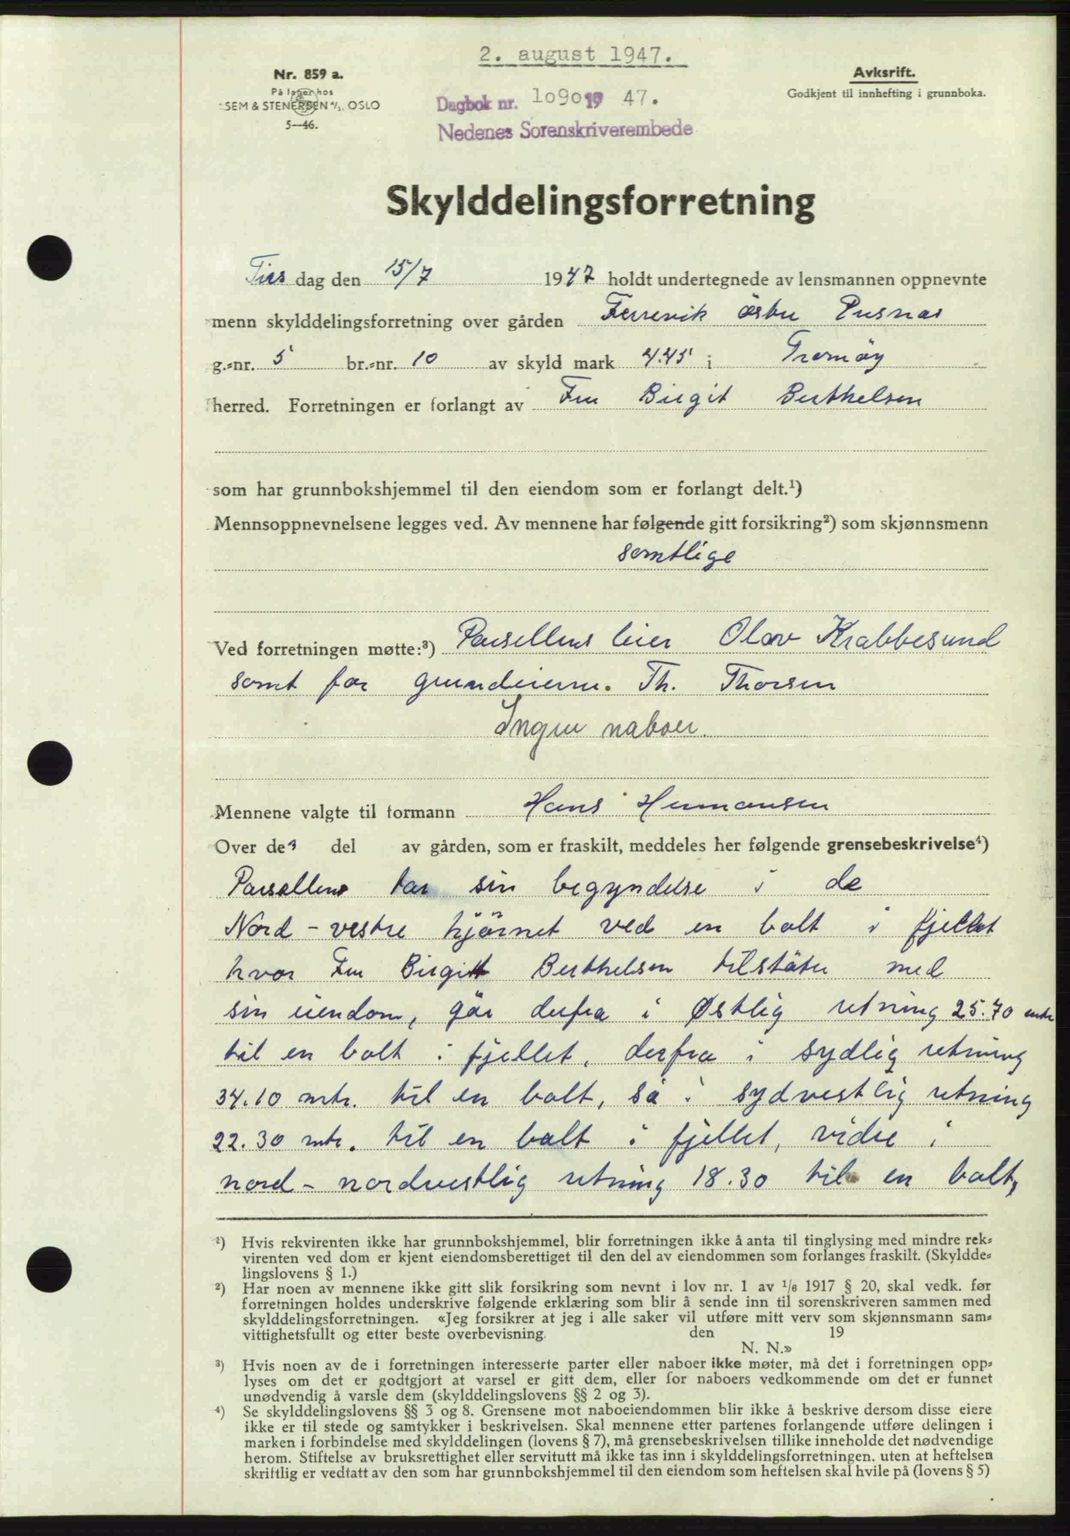 2. august 1947.
Nr. 859 a.
På lager hos
SEM & STENERSEN A/S, OSLO
5-46.
Avksrift.
Godkjent til innhefting i grunnboka.
Dagbok nr. 1090 19 47.
Nedenes Sorenskriverembede
Skylddelingsforretning
Tirs dag den 15/7 1947 holdt undertegnede av lensmannen oppnevnte
menn skylddelingsforretning over gården Færvik østre Pusnes
g.-nr. 5 br.-nr. 10 av skyld mark 4.45 i Tromøy
herred. Forretningen er forlangt av Fru Birgit Berthelsen
som har grunnbokshjemmel til den eiendom som er forlangt delt.¹)
Mennsoppnevnelsene legges ved. Av mennene har følgende gitt forsikring²) som skjønnsmenn
samtlige
Ved forretningen møtte:³) Parsellens eier Olav Krabbesund
samt for grundeierne. Th. Thorsen
Ingen naboer.
Mennene valgte til formann Hans Hermansen
Over de del av gården, som er fraskilt, meddeles her følgende grensebeskrivelse⁴)
Parsellens tar sin begyndelse i de
Nord-vestre hjørnet ved en bolt i fjellet
hvor Fru Birgitt Berthelsen tilstøter med
sin eiendom, går derfra i Østlig retning 25.70 mtr
til en bolt i fjellet, derfra i sydlig retning
34.10 mtr. til en bolt, så i sydvestlig retning
22.30 mtr. til en bolt i fjellet, vidre i
nord-nordvestlig retning 18.30 til en bolt,
¹) Hvis rekvirenten ikke har grunnbokshjemmel, blir forretningen ikke å anta til tinglysing med mindre rek-
virenten ved dom er kjent eiendomsberettiget til den del av eiendommen som forlanges fraskilt. (Skyldde-
lingslovens § 1.)
²) Har noen av mennene ikke gitt slik forsikring som nevnt i lov nr. 1 av 1/6 1917 § 20, skal vedk. før
forretningen holdes underskrive følgende erklæring som blir å sende inn til sorenskriveren sammen med
skylddelingsforretningen. «Jeg forsikrer at jeg i alle saker vil utføre mitt verv som skjønnsmann sam-
vittighetsfullt og etter beste overbevisning. den 19
N. N.»
³) Hvis noen av de i forretningen interesserte parter eller naboer ikke møter, må det i forretningen opp-
lyses om det er godtgjort at varsel er gitt dem, eller for naboers vedkommende om det er funnet
unødvendig å varsle dem (skylddelingslovens §§ 2 og 3).
⁴) Se skylddelingslovens §§ 3 og 8. Grensene mot naboeiendommen blir ikke å beskrive dersom disse eiere
ikke er til stede og samtykker i beskrivelsen. Skal mennene etter partenes forlangende utføre delingen i
marken i forbindelse med skylddelingen (lovens § 7), må grensebeskrivelsen tillike inneholde det nødvendige
herom. Stiftelse av bruksrettighet eller servitutt må ikke tas inn i skylddelingsforretningen. uten at heftelsen
skriftlig er vedtatt av den som har grunnbokshjemmel til den eiendom som heftelsen skal hvile på (lovens § 5)